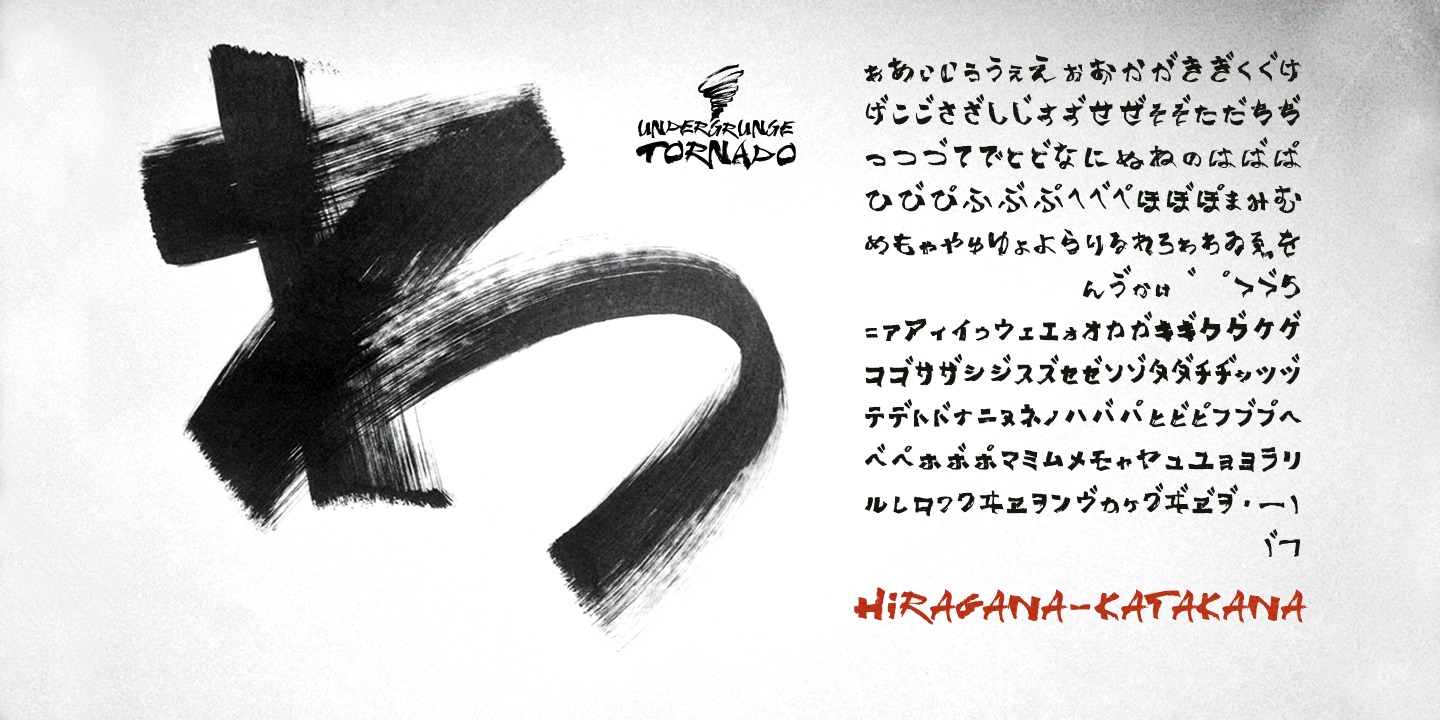 わ
UNDERGRUNGE
TORNADO
ぁあぃいぅうぇえぉおかがきぎくぐけ
げこごさざしじすずせぜそぞただちぢ
っつづてでとどなにぬねのはばぱ
ひびぴふぶぷへべぺほぼぽまみむ
めもゃやゅゆょよらりるれろゎわゐゑを
んゔゕゖ゛゜ゝゞゟ
゠ァアィイゥウェエォオカガキギクグケゲ
コゴサザシジスズセゼソゾタダチヂッツヅ
テデトドナニヌネノハバパヒビピフブプヘ
ベペホボポマミムメモャヤュユョヨラリ
ルレロヮワヰヱヲンヴヵヶヷヸヹヺ・ーヽ
ヾヿ
HiRAGANA-KATAKANA